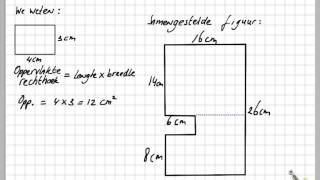 We weten:
3cm
4cm
Oppervlakte rechthoek = lengte x breedte
Opp. = 4 x 3 = 12 cm²
Samengestelde figuur:
16cm
14cm
6cm
26cm
8cm